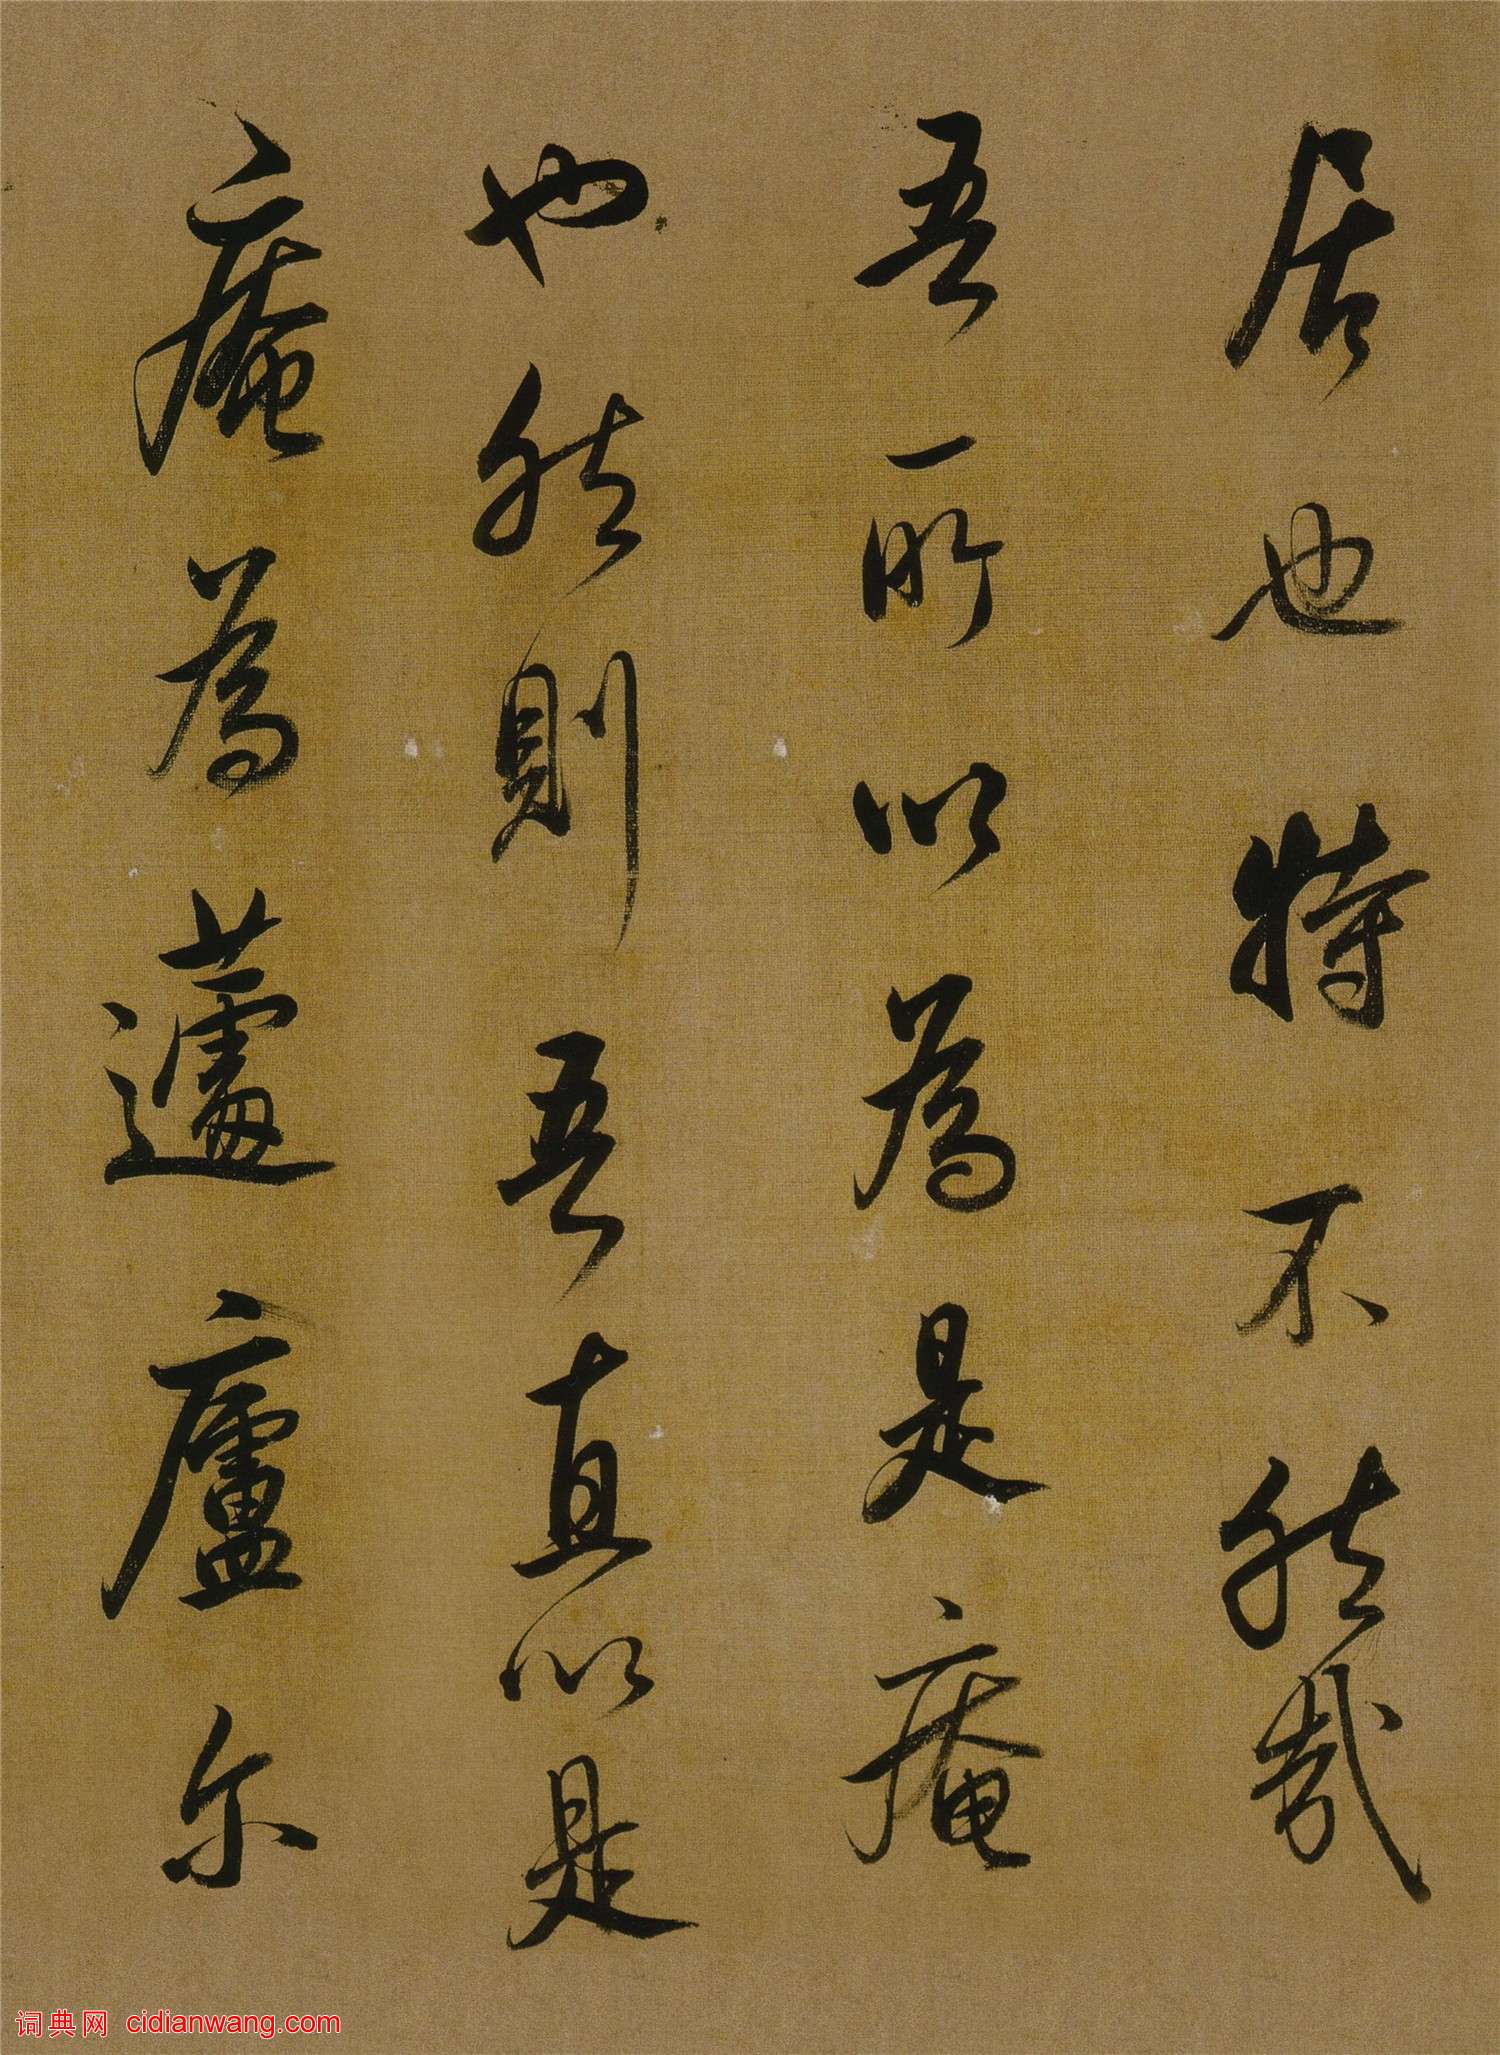 居也特不然哉
吾所以為是庵
也然則吾直以是
庵為蘧廬尔
词典网 cidianwang.com